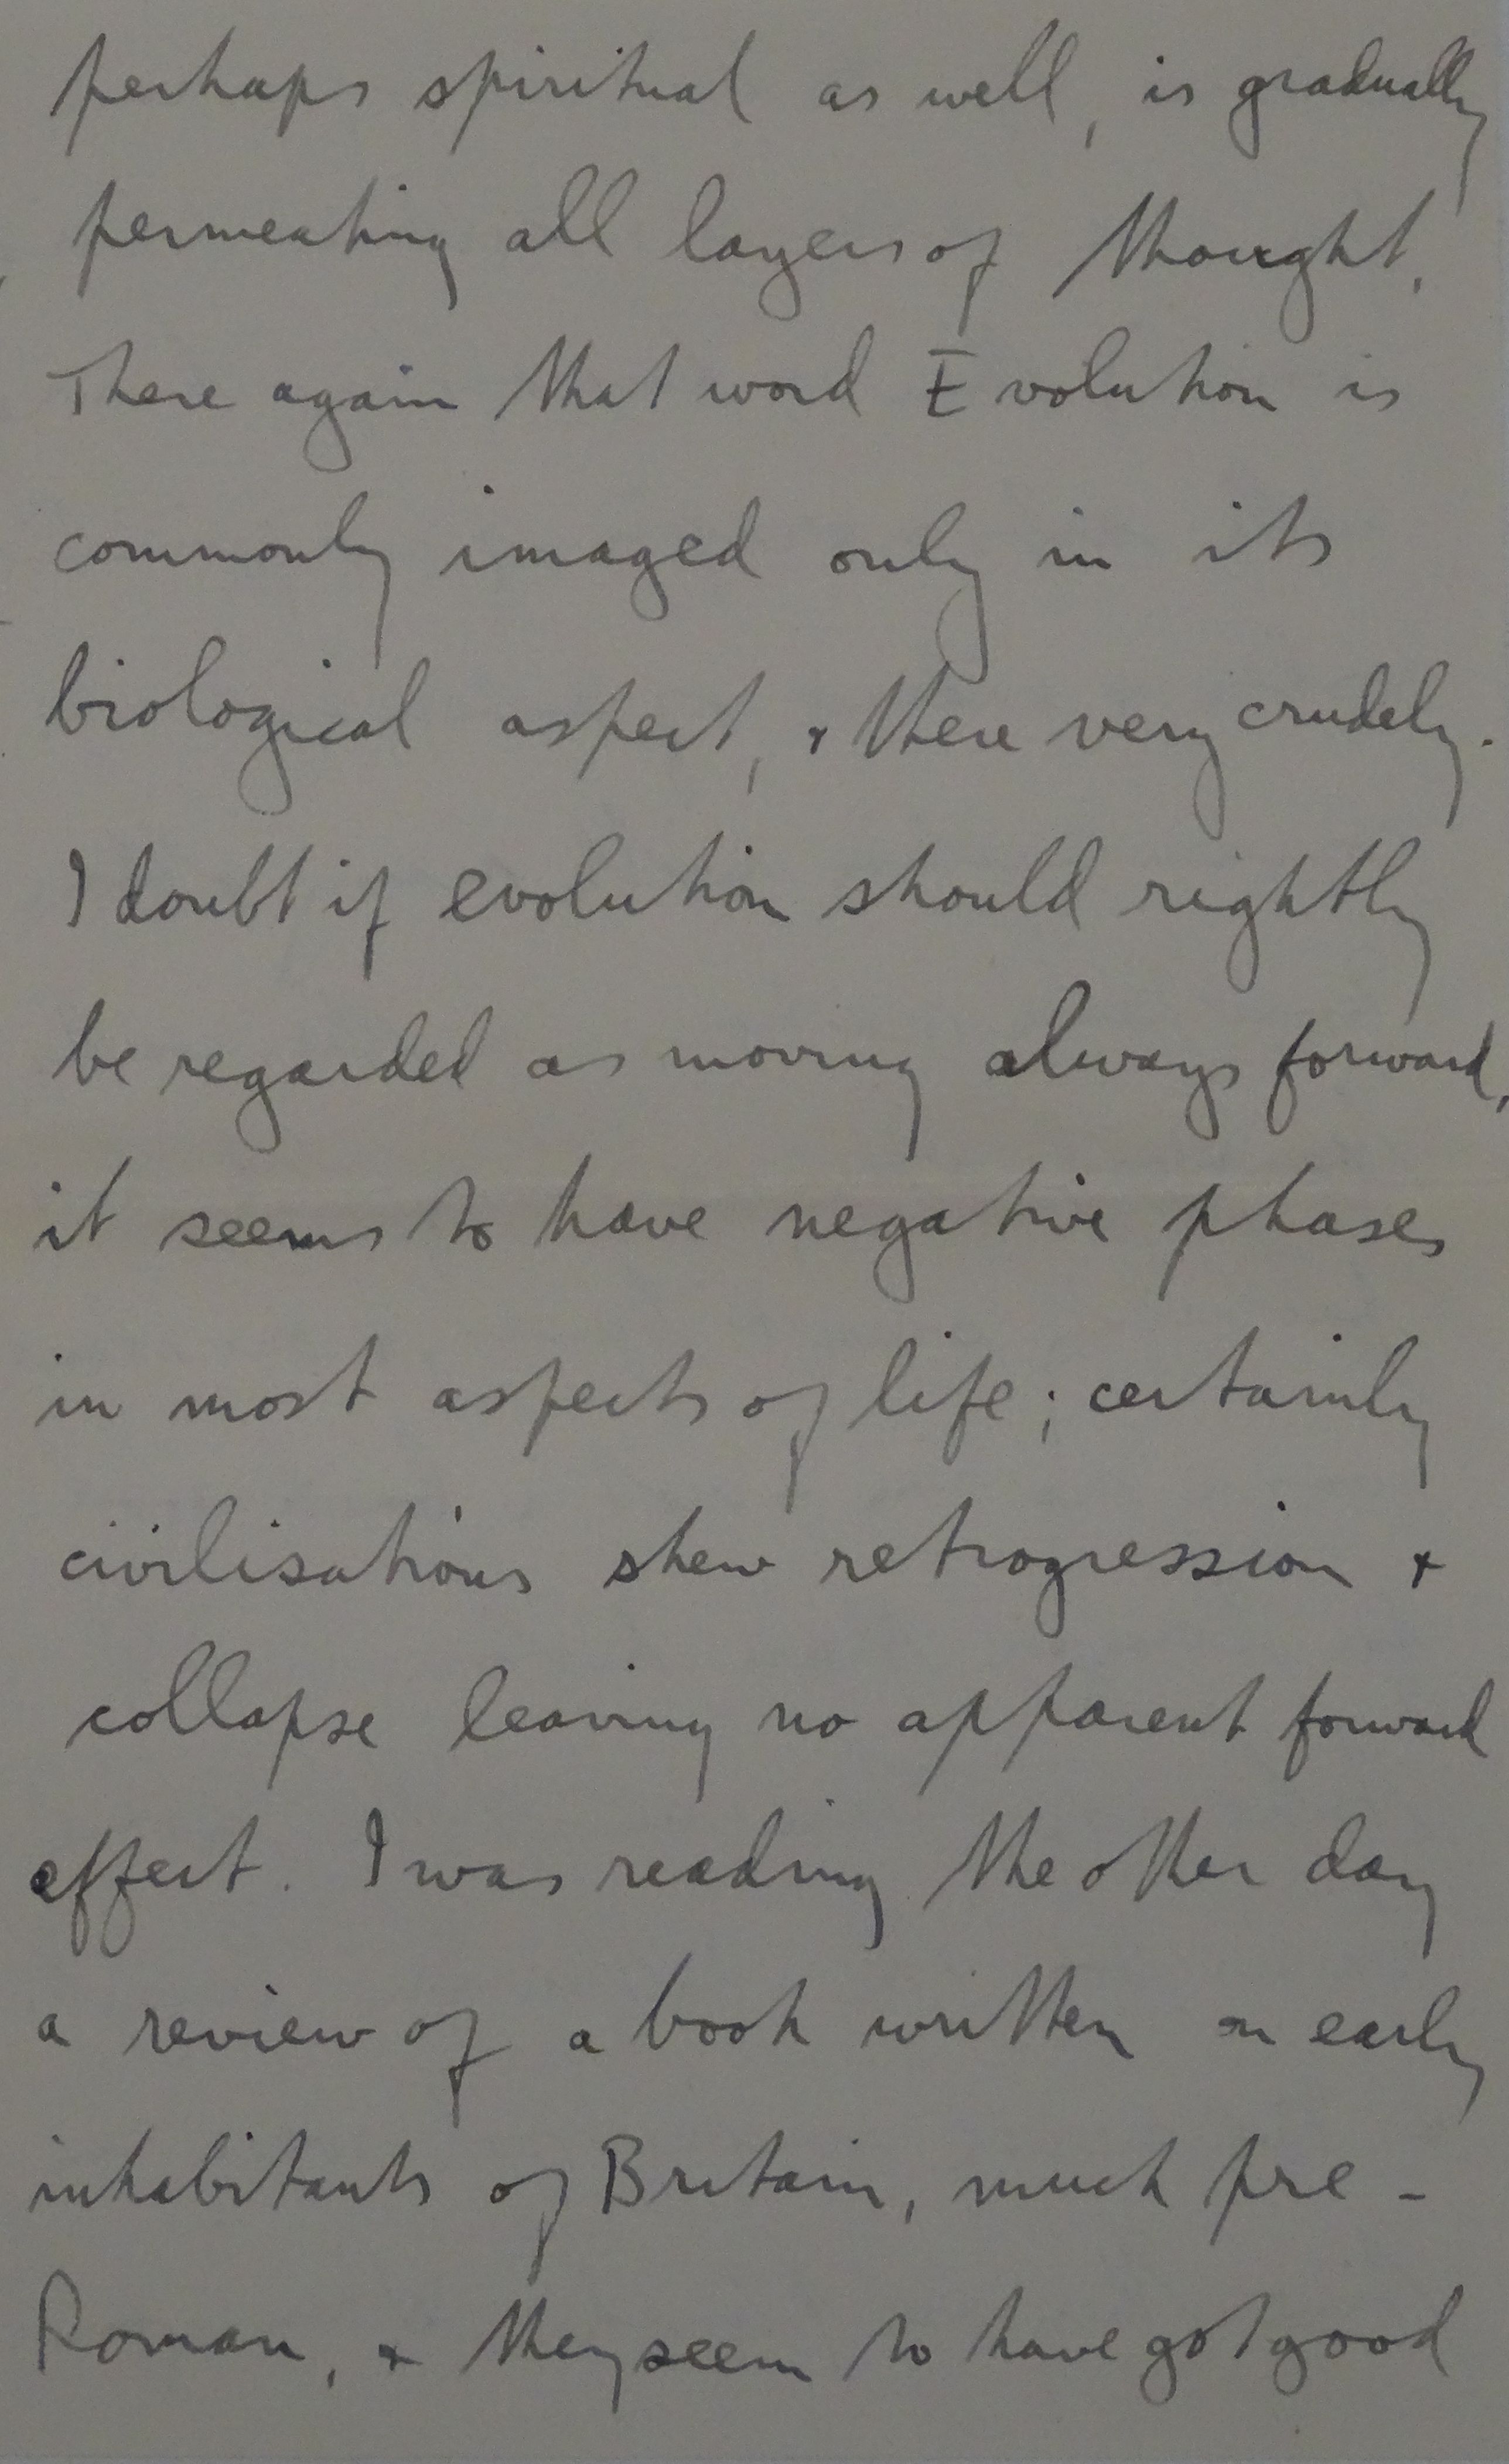 perhaps spiritual as well, is gradually
permeating all layers of thought.
There again that word Evolution is
commonly imaged only in its
biological aspect, & there very crudely.
I doubt if evolution should rightly
be regarded as moving always forward,
it seems to have negative phases
in most aspects of life; certainly
civilisations shew retrogression &
collapse leaving no apparent forward
effect. I was reading the other day
a review of a book written on early
inhabitants of Britain, much pre-
Roman, & they seem to have got good